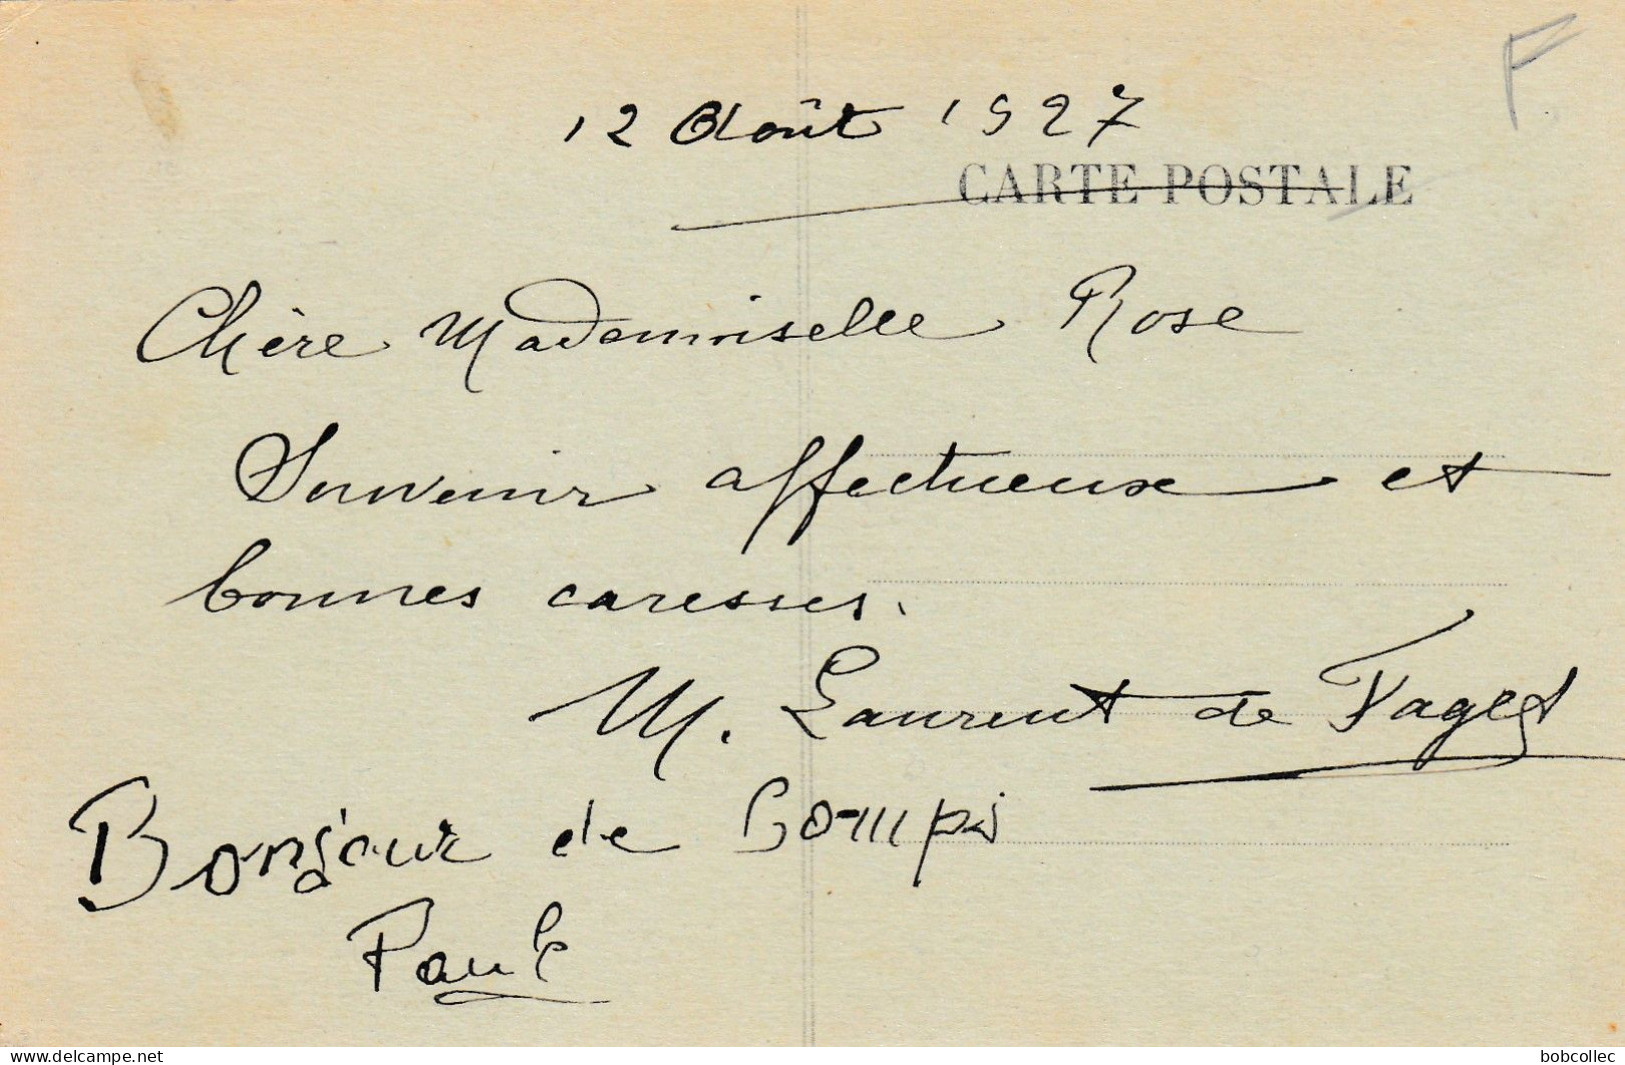 F.
12 Août 1927
CARTE POSTALE
Chère Mademoiselle Rose
Souvenir affectueux et
bonnes caresses.
M. Laurent de Faget
Bonjour de
Paul
delcampe.net
bobcollec